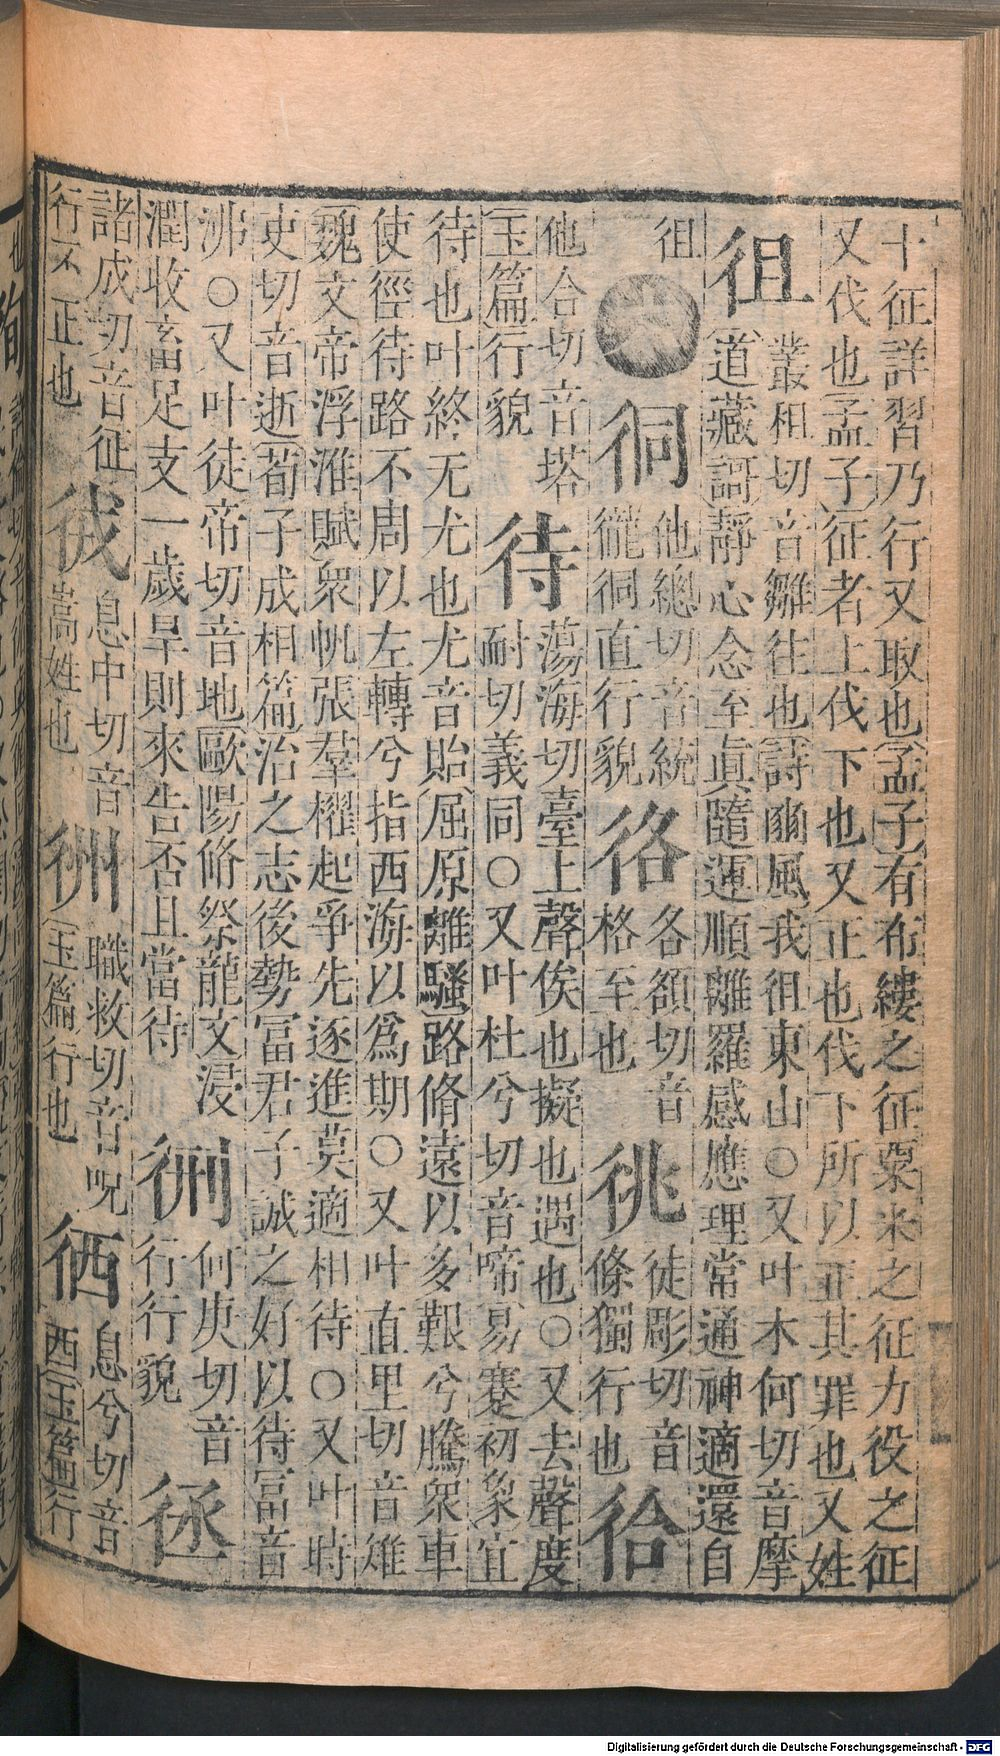 十征詳習乃行又取也孟子有布縷之征粟米之征力役之征
又伐也孟子征者上伐下也又正也伐下所以正其罪也又姓
徂
叢相切音雛往也詩豳風我徂東山○又叶木何切音摩
道藏謌靜心念至眞隨運順離羅感應理常通神適還自
徂
六
㣚
他總切音統
徿㣚直行貌
各額切音
格至也
徒彫切音
條獨行也
㣛
他合切音塔
玉篇行貌
待
蕩海切臺上聲俟也擬也遇也○又去聲度
耐切義同○又叶杜兮切音啼易蹇初象宜
待也叶終无尤也尤音貽屈原離騷路脩遠以多艱兮騰衆車
使徑待路不周以左轉兮指西海以爲期○又叶直里切音雉
魏文帝浮淮賦衆帆張羣櫂起爭先逐進莫適相待○又叶時
吏切音逝荀子成相篇治之志後勢冨君子誠之好以待冨音
沸○又叶徒帝切音地歐陽脩祭龍文浸
潤收畜足支一歲旱則來告否且當待
何庚切音
行行貌
諸成切音征
行不正也
息中切音
嵩姓也
職救切音呪
玉篇行也
息兮切音
西玉篇行
Digitalisierung gefördert durch die Deutsche Forschungsgemeinschaft - DFG